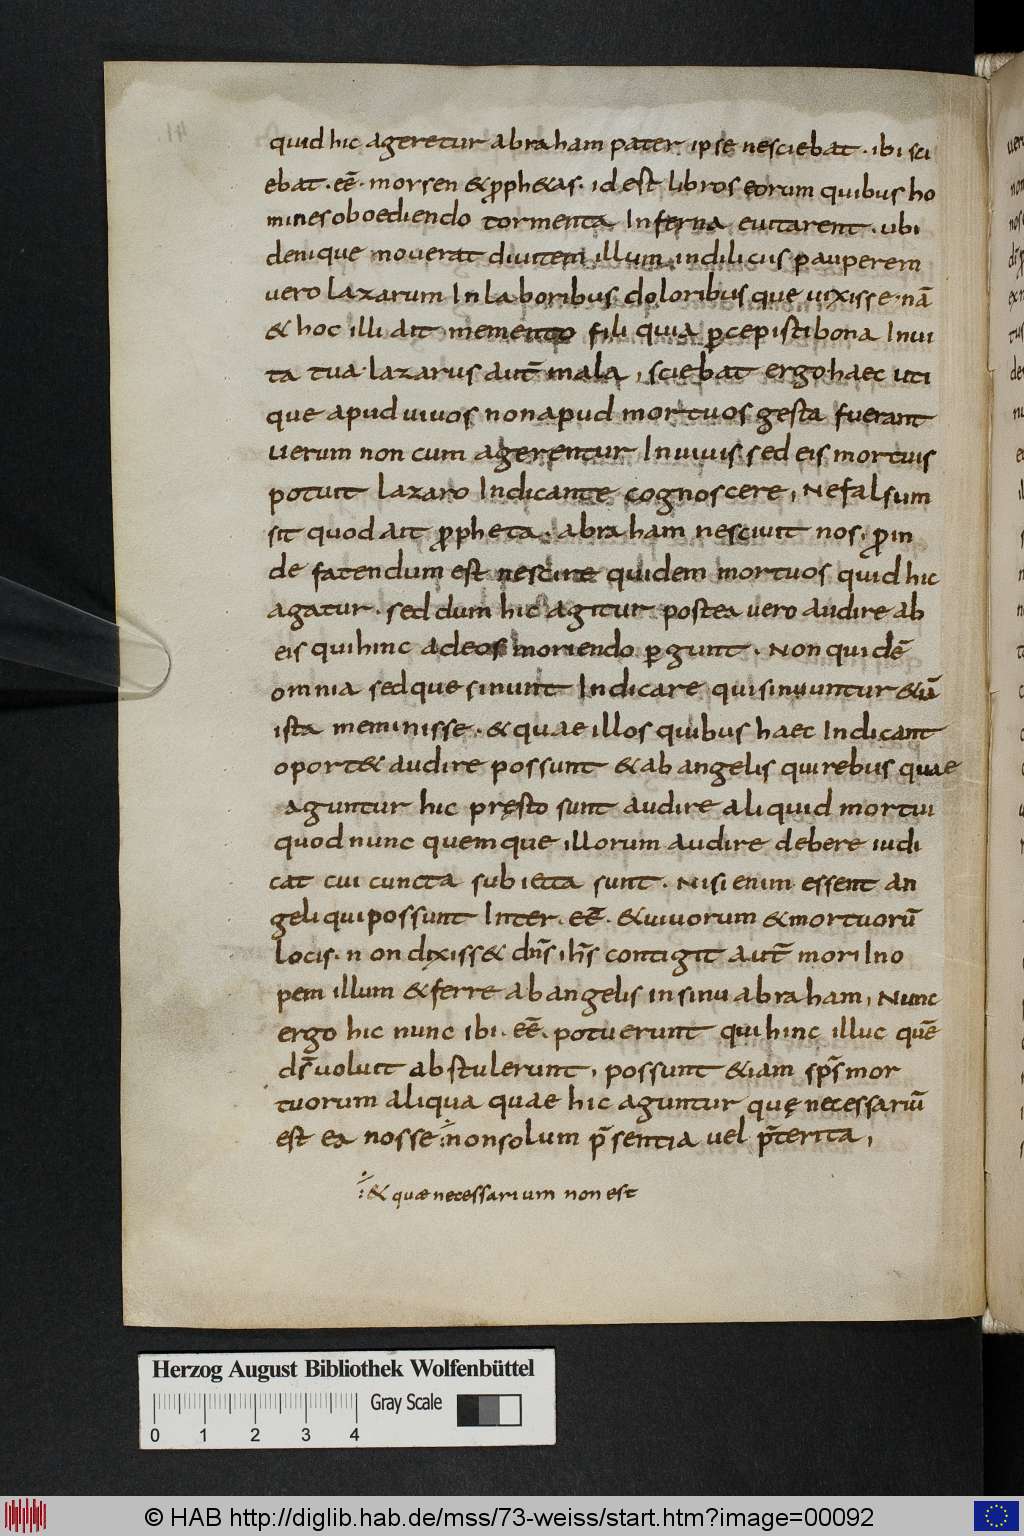 quid hic ageretur abraham pater ipse nesciebat · ibi sci
ebat · eē · morsen & p̄ph&as · id est libros eorum quibus ho
mines oboediendo tormenta Inferna euitarent · ubi
denique nouerat diuitem illum indiliciis pauperem
vero lazarum In laboribus doloribusque uixisse · nā
& hoc illi ait memento fili quia p̱cepisti bona Inui
ta tua · lazarus aut̄ mala, sciebat ergo haec uti
que apud uiuos non apud mortuos gesta fuerant
uerum non cum agerentur In uiuis, sed eis mortuis
potuit lazaro Indicante cognoscere, Ne falsum
sit quod ait p̱pheta · abraham nesciuit nos, p̱in
de fatendum est nescire quidem mortuos quid hic
agatur · sed dum hic agitur postea vero audire ab
eis qui hinc adeos moriendo p̱gunt · Non quidē
omnia sed que sinunt Indicare qui sinuuntur &iā
ista meminisse · & quae illos quibus haec Indicant
oport& audire possunt & ab angelis qui rebus quae
aguntur hic pręsto sunt audire aliquid mortui
quod nunc quemque illorum audire debere iudi
cat cui cuncta subiecta sunt · Nisi enim essent an
geli qui possunt Inter · eē · & uiuorum & mortuorū
locis · non dixiss& dn̄s ih̄s contigit aut̄ mori Ino
pem illum & ferre ab angelis in sinu abraham, Nunc
ergo hic nunc ibi · eē · potuerunt qui hinc illuc quē
ds̄ uoluit abstulerunt, possunt &iam sp̄s mor
tuorum aliqua quae hic aguntur quę necessariū
est ea nosse non solum p̄sentia uel p̄terita,
& quae necessarium non est
Herzog August Bibliothek Wolfenbüttel
Gray Scale
0 1 2 3 4
© HAB http://diglib.hab.de/mss/73-weiss/start.htm?image=00092